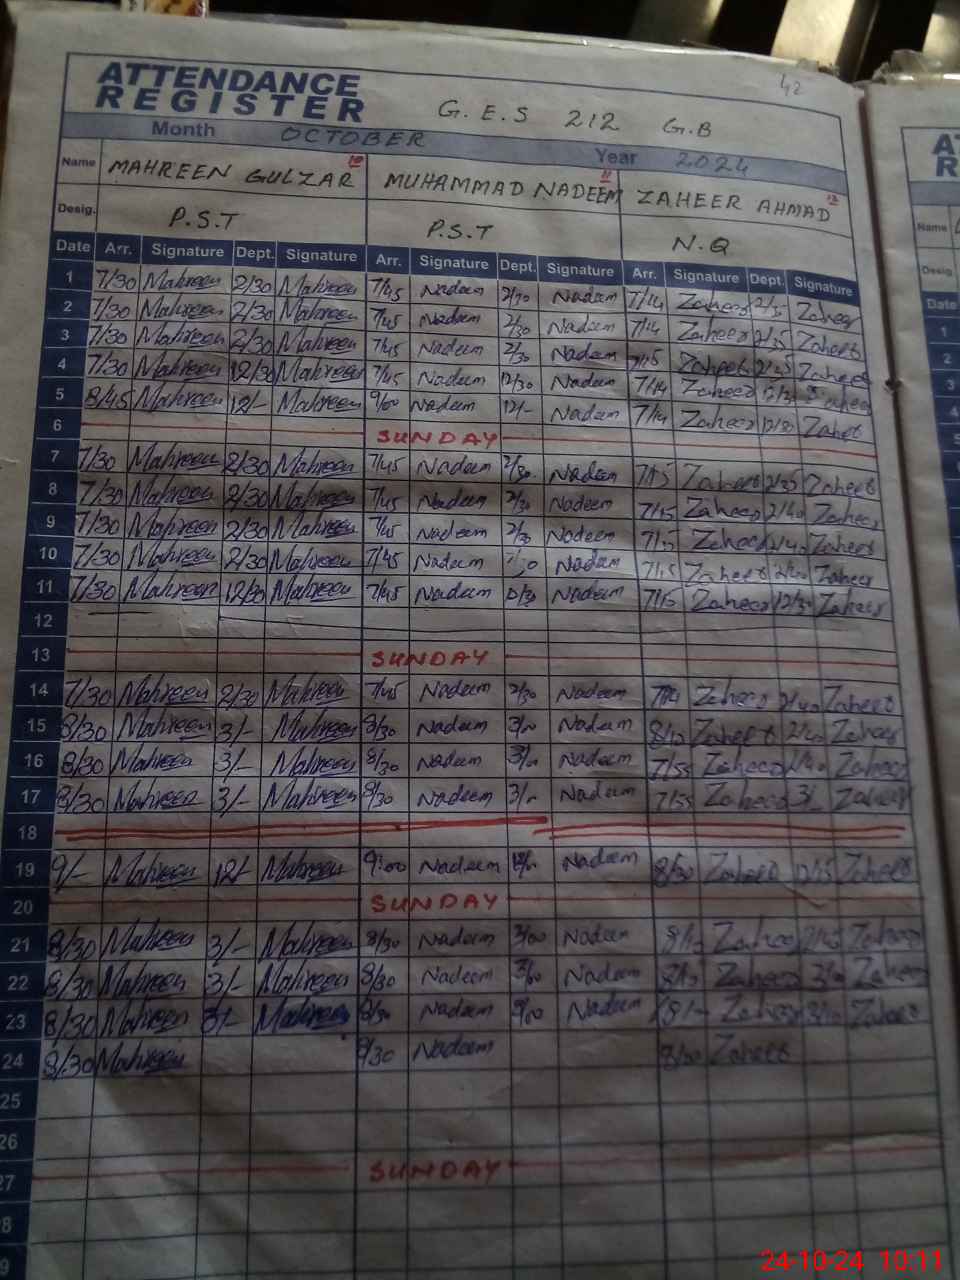 42
ATTENDANCE
REGISTER
G.E.S 212 G.B
Month OCTOBER Year 2024
Name MAHREEN GULZAR 10 MUHAMMAD NADEEM 11 ZAHEER AHMAD
Desig. P.S.T P.S.T N.Q
Date Arr. Signature Dept. Signature Arr. Signature Dept. Signature Arr. Signature Dept. Signature
1 7/30 Mahreen 2/30 Mahreen 7/45 Nadeem 2/30 Nadeem 7/14 Zaheer 2/30 Zaheer
2 7/30 Mahreen 2/30 Mahreen 7/45 Nadeem 2/30 Nadeem 7/14 Zaheer 2/35 Zaheer
3 7/30 Mahreen 2/30 Mahreen 7/45 Nadeem 2/30 Nadeem 7/15 Zaheer 2/45 Zaheer
4 7/30 Mahreen 12/30 Mahreen 7/45 Nadeem 12/30 Nadeem 7/14 Zaheer Zaheer
5 8/45 Mahreen 12/- Mahreen 9/00 Nadeem 12/- Nadeem 7/14 Zaheer 12/30 Zaheer
6 SUNDAY
7 7/30 Mahreen 2/30 Mahreen 7/45 Nadeem 2/30 Nadeem 7/15 Zaheer 2/35 Zaheer
8 7/30 Mahreen 2/30 Mahreen 7/45 Nadeem 2/30 Nadeem 7/15 Zaheer 2/40 Zaheer
9 7/30 Mahreen 2/30 Mahreen 7/45 Nadeem 2/30 Nadeem 7/15 Zaheer 2/40 Zaheer
10 7/30 Mahreen 2/30 Mahreen 7/45 Nadeem 2/30 Nadeem 7/15 Zaheer 2/40 Zaheer
11 7/30 Mahreen 12/30 Mahreen 7/45 Nadeem 12/30 Nadeem 7/15 Zaheer 12/30 Zaheer
12
13 SUNDAY
14 7/30 Mahreen 2/30 Mahreen 7/45 Nadeem 2/30 Nadeem 7/14 Zaheer 2/40 Zaheer
15 8/30 Mahreen 3/- Mahreen 8/30 Nadeem 3/00 Nadeem 8/10 Zaheer 2/40 Zaheer
16 8/30 Mahreen 3/- Mahreen 8/30 Nadeem 3/00 Nadeem 7/55 Zaheer Zaheer
17 8/30 Mahreen 3/- Mahreen 8/30 Nadeem 3/- Nadeem 7/55 Zaheer 3/ Zaheer
18
19 9/- Mahreen 12/- Mahreen 9:00 Nadeem 12/00 Nadeem 8/30 Zaheer 12/15 Zaheer
20 SUNDAY
21 8/30 Mahreen 3/- Mahreen 8/30 Nadeem 3/00 Nadeem Zaheer Zaheer
22 8/30 Mahreen 3/- Mahreen 8/30 Nadeem 3/00 Nadeem Zaheer Zaheer
23 8/30 Mahreen 3/- Mahreen 8/30 Nadeem Nadeem 8/- Zaheer Zaheer
24 8/30 Mahreen 8/30 Nadeem Zaheer
25
26
27 SUNDAY
24-10-24 10:11